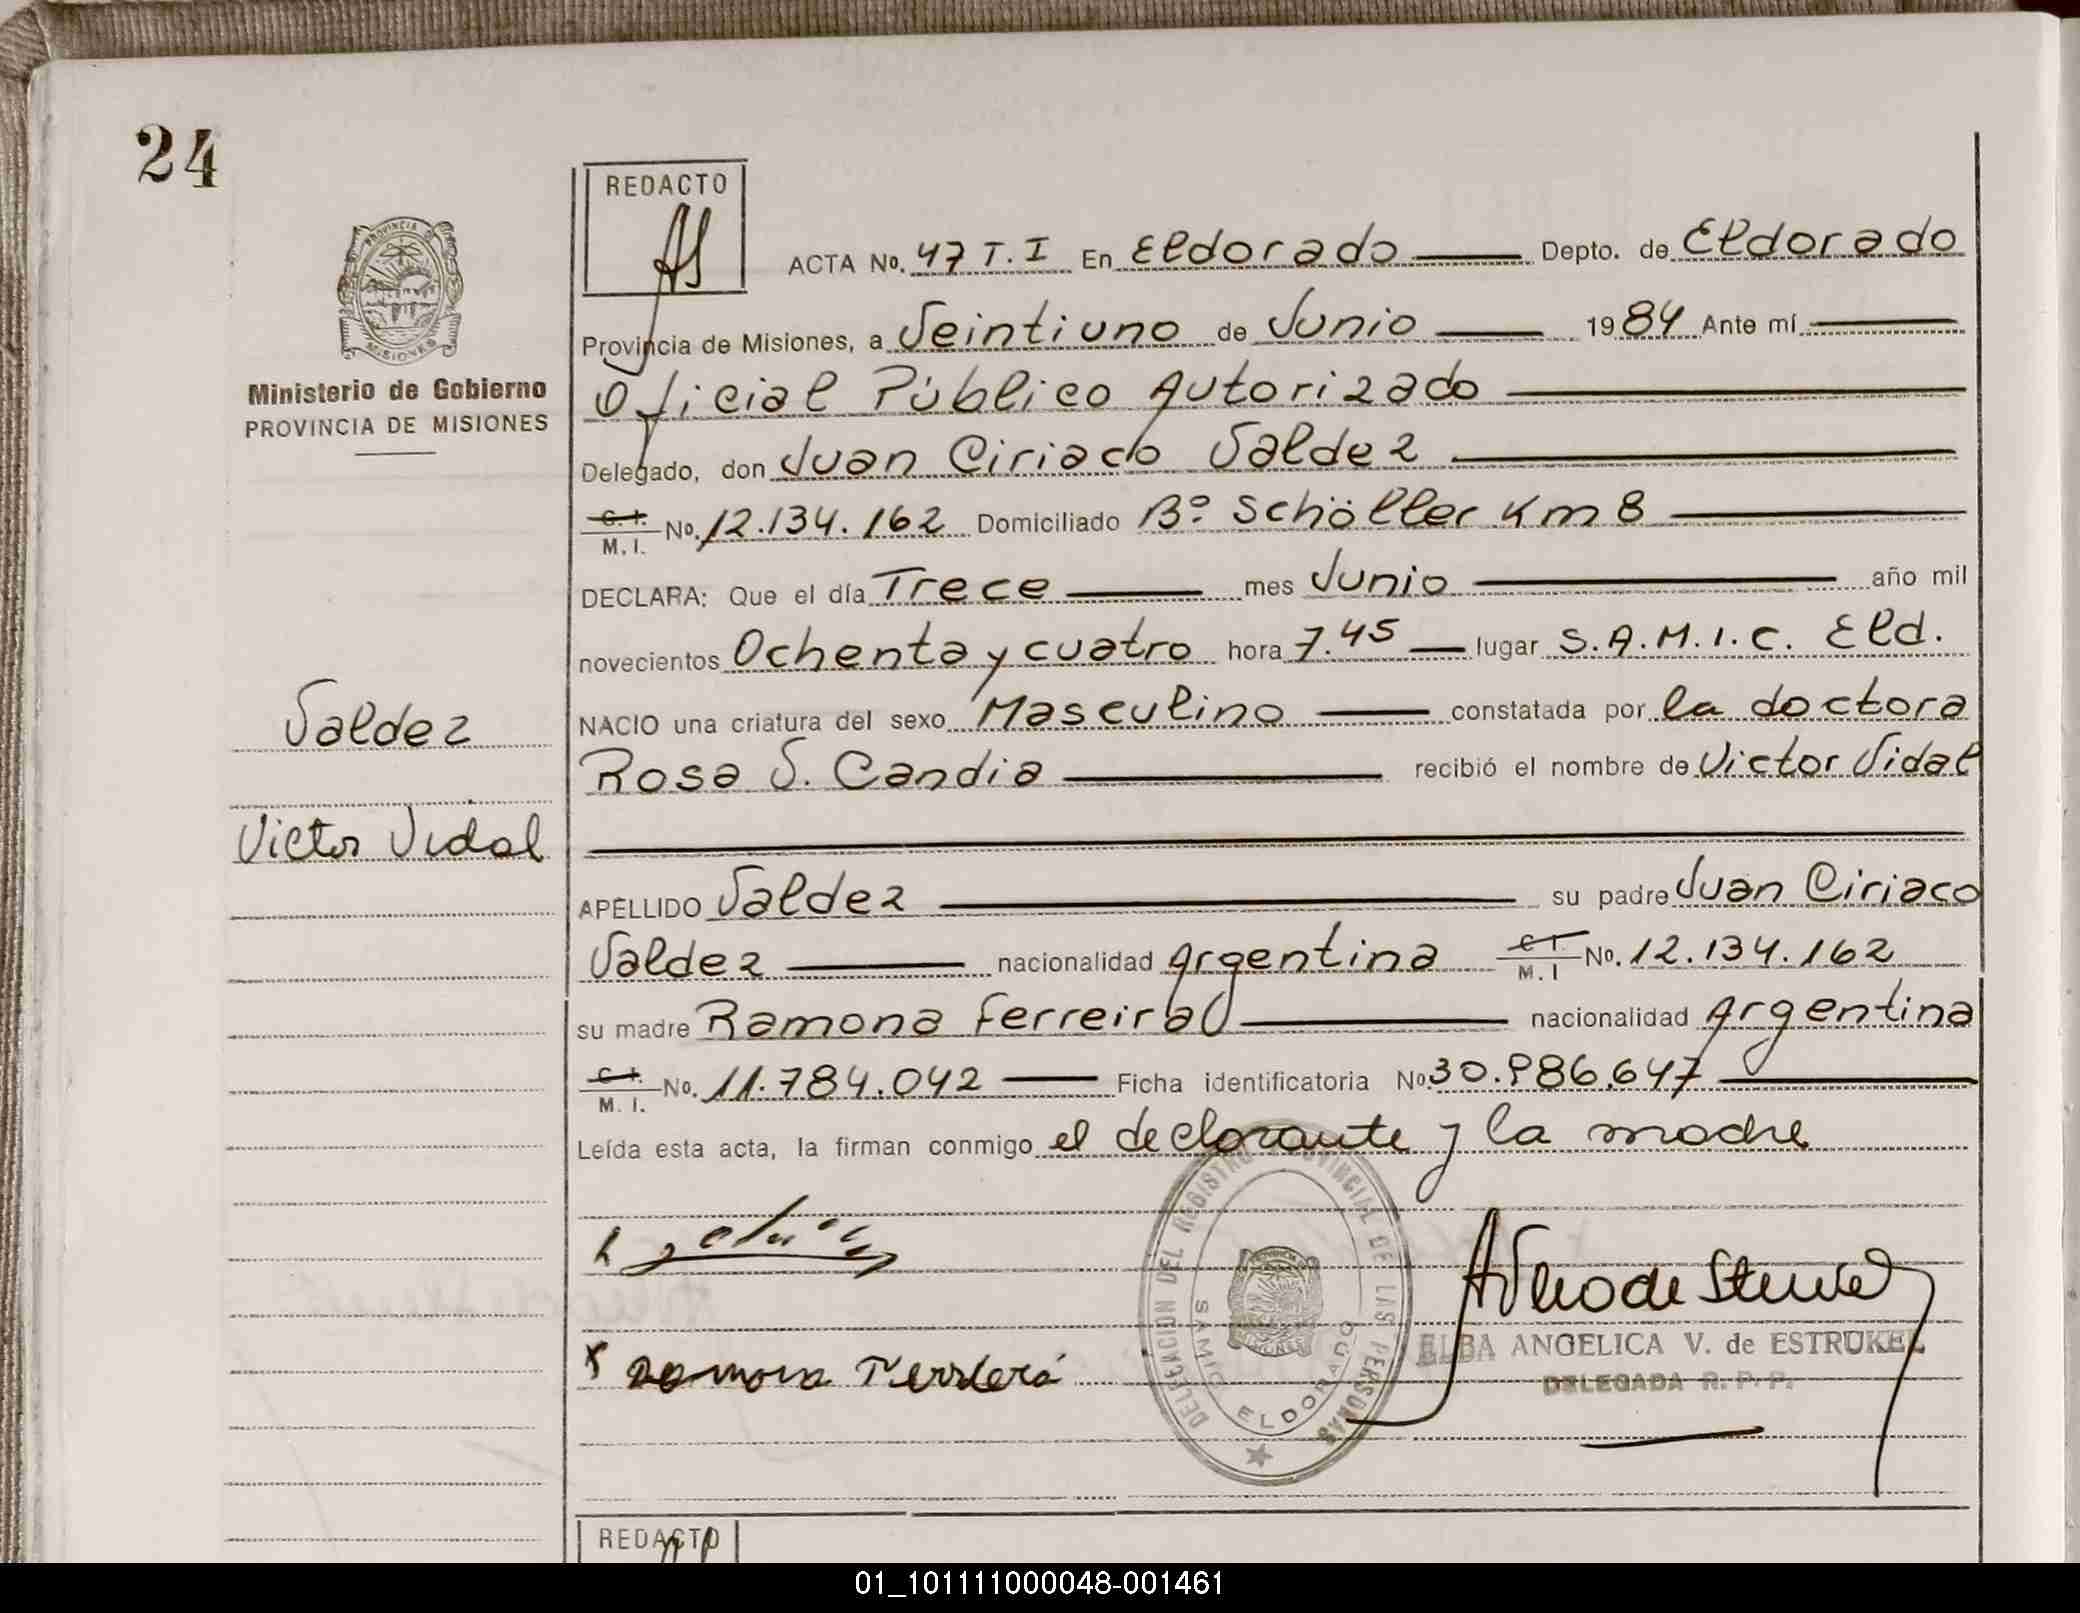 24
REDACTO
ACTA No. 47 T. I En Eldorado Depto. de Eldorado
Provincia de Misiones, a Veintiuno de Junio 1984 Ante mí
Oficial Público Autorizado
Delegado, don Juan Ciriaco Valdez
C. I. M. I. No. 12.134.162 Domiciliado Bº Schöller Km 8
DECLARA: Que el día Trece mes Junio año mil
novecientos Ochenta y cuatro hora 7.45 lugar S.A.M.I.C. Eld.
NACIO una criatura del sexo Masculino constatada por la doctora
Rosa V. Candia recibió el nombre de Victor Vidal
APELLIDO Valdez su padre Juan Ciriaco
Valdez nacionalidad Argentina C I. M. I No. 12.134.162
su madre Ramona Ferreira nacionalidad Argentina
C. I. M. I. No. 11.784.042 Ficha identificatoria No. 30.986.647
Leída esta acta, la firman conmigo el declarante y la madre
PROVINCIA D MISIONES
Ministerio de Gobierno
PROVINCIA DE MISIONES
Valdez
Victor Vidal
Ramona
DELEGACION DEL REGISTRO PROVINCIAL DE LAS PERSONAS
SAMIC ELDORADO
ELBA ANGELICA V. de ESTRUKEL
DELEGADA R. P. P.
REDACTO
01_101111000048-001461